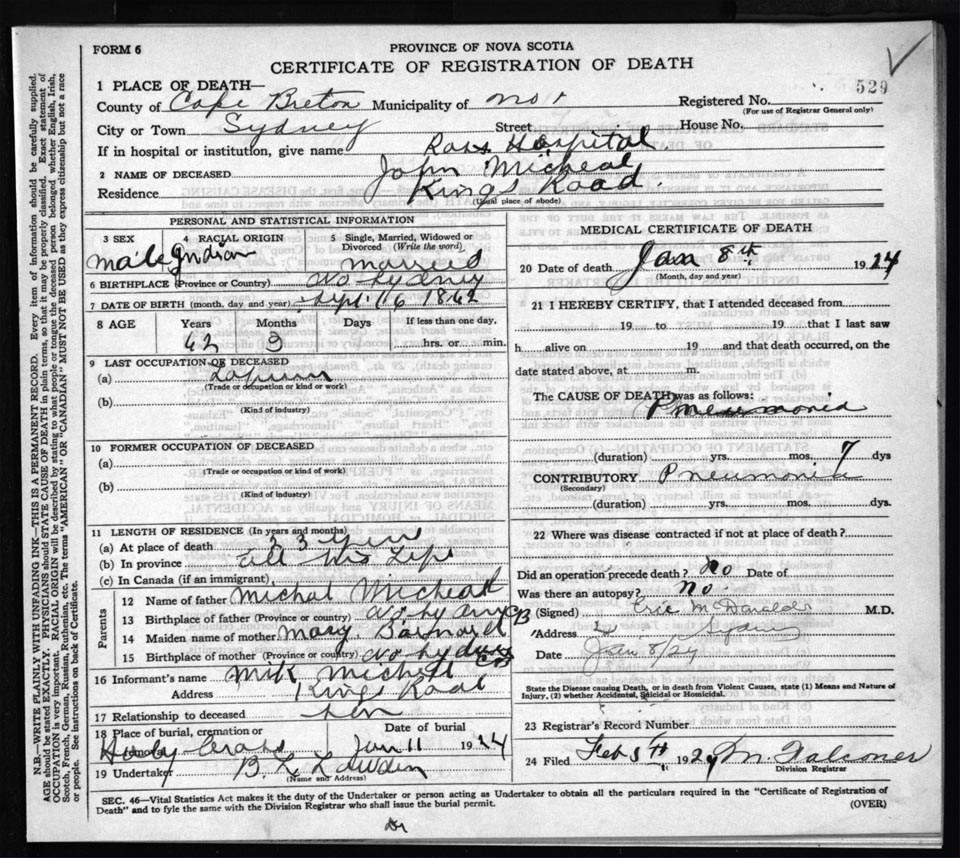 FORM 6
PROVINCE OF NOVA SCOTIA
CERTIFICATE OF REGISTRATION OF DEATH
529
1 PLACE OF DEATH—
County of Cape Breton Municipality of No 1 Registered No.
(For use of Registrar General only)
City or Town Sydney Street House No.
If in hospital or institution, give name Ross Hospital
2 NAME OF DECEASED John Micheal
Residence Kings Road.
(Usual place of abode)
PERSONAL AND STATISTICAL INFORMATION
3 SEX male
4 RACIAL ORIGIN Indian
5 Single, Married, Widowed or Divorced (Write the word) married
6 BIRTHPLACE (Province or Country) No Sydney
7 DATE OF BIRTH (month, day, and year) Sept. 16 1862
8 AGE Years Months Days If less than one day,
3 hrs. or min.
9 LAST OCCUPATION OF DECEASED
(a)
(Trade or occupation or kind of work)
(b)
(Kind of industry)
10 FORMER OCCUPATION OF DECEASED
(a)
(Trade or occupation or kind of work)
(b)
(Kind of industry)
11 LENGTH OF RESIDENCE (In years and months)
(a) At place of death 23 years
(b) In province all his Life
(c) In Canada (if an immigrant)
Parents
12 Name of father Michal Micheal
13 Birthplace of father (Province or country) No Sydney CB
14 Maiden name of mother Mary Barnard
15 Birthplace of mother (Province or country) No Sydney CB
16 Informant's name Mik Micheal
Address Kings Road
17 Relationship to deceased Son
18 Place of burial, cremation or Date of burial
Holy Cross Jan 11 1924
19 Undertaker B. L.
(Name and Address)
MEDICAL CERTIFICATE OF DEATH
20 Date of death Jan 8th 1924
(Month, day and year)
21 I HEREBY CERTIFY, that I attended deceased from
19 to 19 that I last saw
h alive on 19 and that death occurred, on the
date stated above, at m.
The CAUSE OF DEATH was as follows:
Pneumonia
(duration) yrs. mos. 7 dys
CONTRIBUTORY Pneumonia
(Secondary)
(duration) yrs. mos. dys.
22 Where was disease contracted if not at place of death?
Did an operation precede death? No Date of
Was there an autopsy? no
(Signed) Eric McDonald M.D.
Address Sydney
Date Jan 8/24
State the Disease causing Death, or in death from Violent Causes, state (1) Means and Nature of
Injury, (2) whether Accidental, Suicidal or Homicidal.
23 Registrar's Record Number
24 Filed Feb 5th 192
Division Registrar
SEC. 46—Vital Statistics Act makes it the duty of the Undertaker or person acting as Undertaker to obtain all the particulars required in the "Certificate of Registration of
Death" and to fyle the same with the Division Registrar who shall issue the burial permit. (OVER)
N.B.—WRITE PLAINLY WITH UNFADING INK—THIS IS A PERMANENT RECORD. Every item of information should be carefully supplied.
AGE should be stated EXACTLY. PHYSICIANS should STATE CAUSE OF DEATH in plain terms, so that it may be properly classified. Exact statement of
OCCUPATION is very important. RACIAL ORIGIN will be described by stating to what people or tongue the deceased person belonged whether English, Irish,
Scotch, French, German, Russian, Ruthenian, etc. The terms "AMERICAN" OR "CANADIAN" MUST NOT BE USED as they express citizenship but not a race
or people. See instructions on back of Certificate.